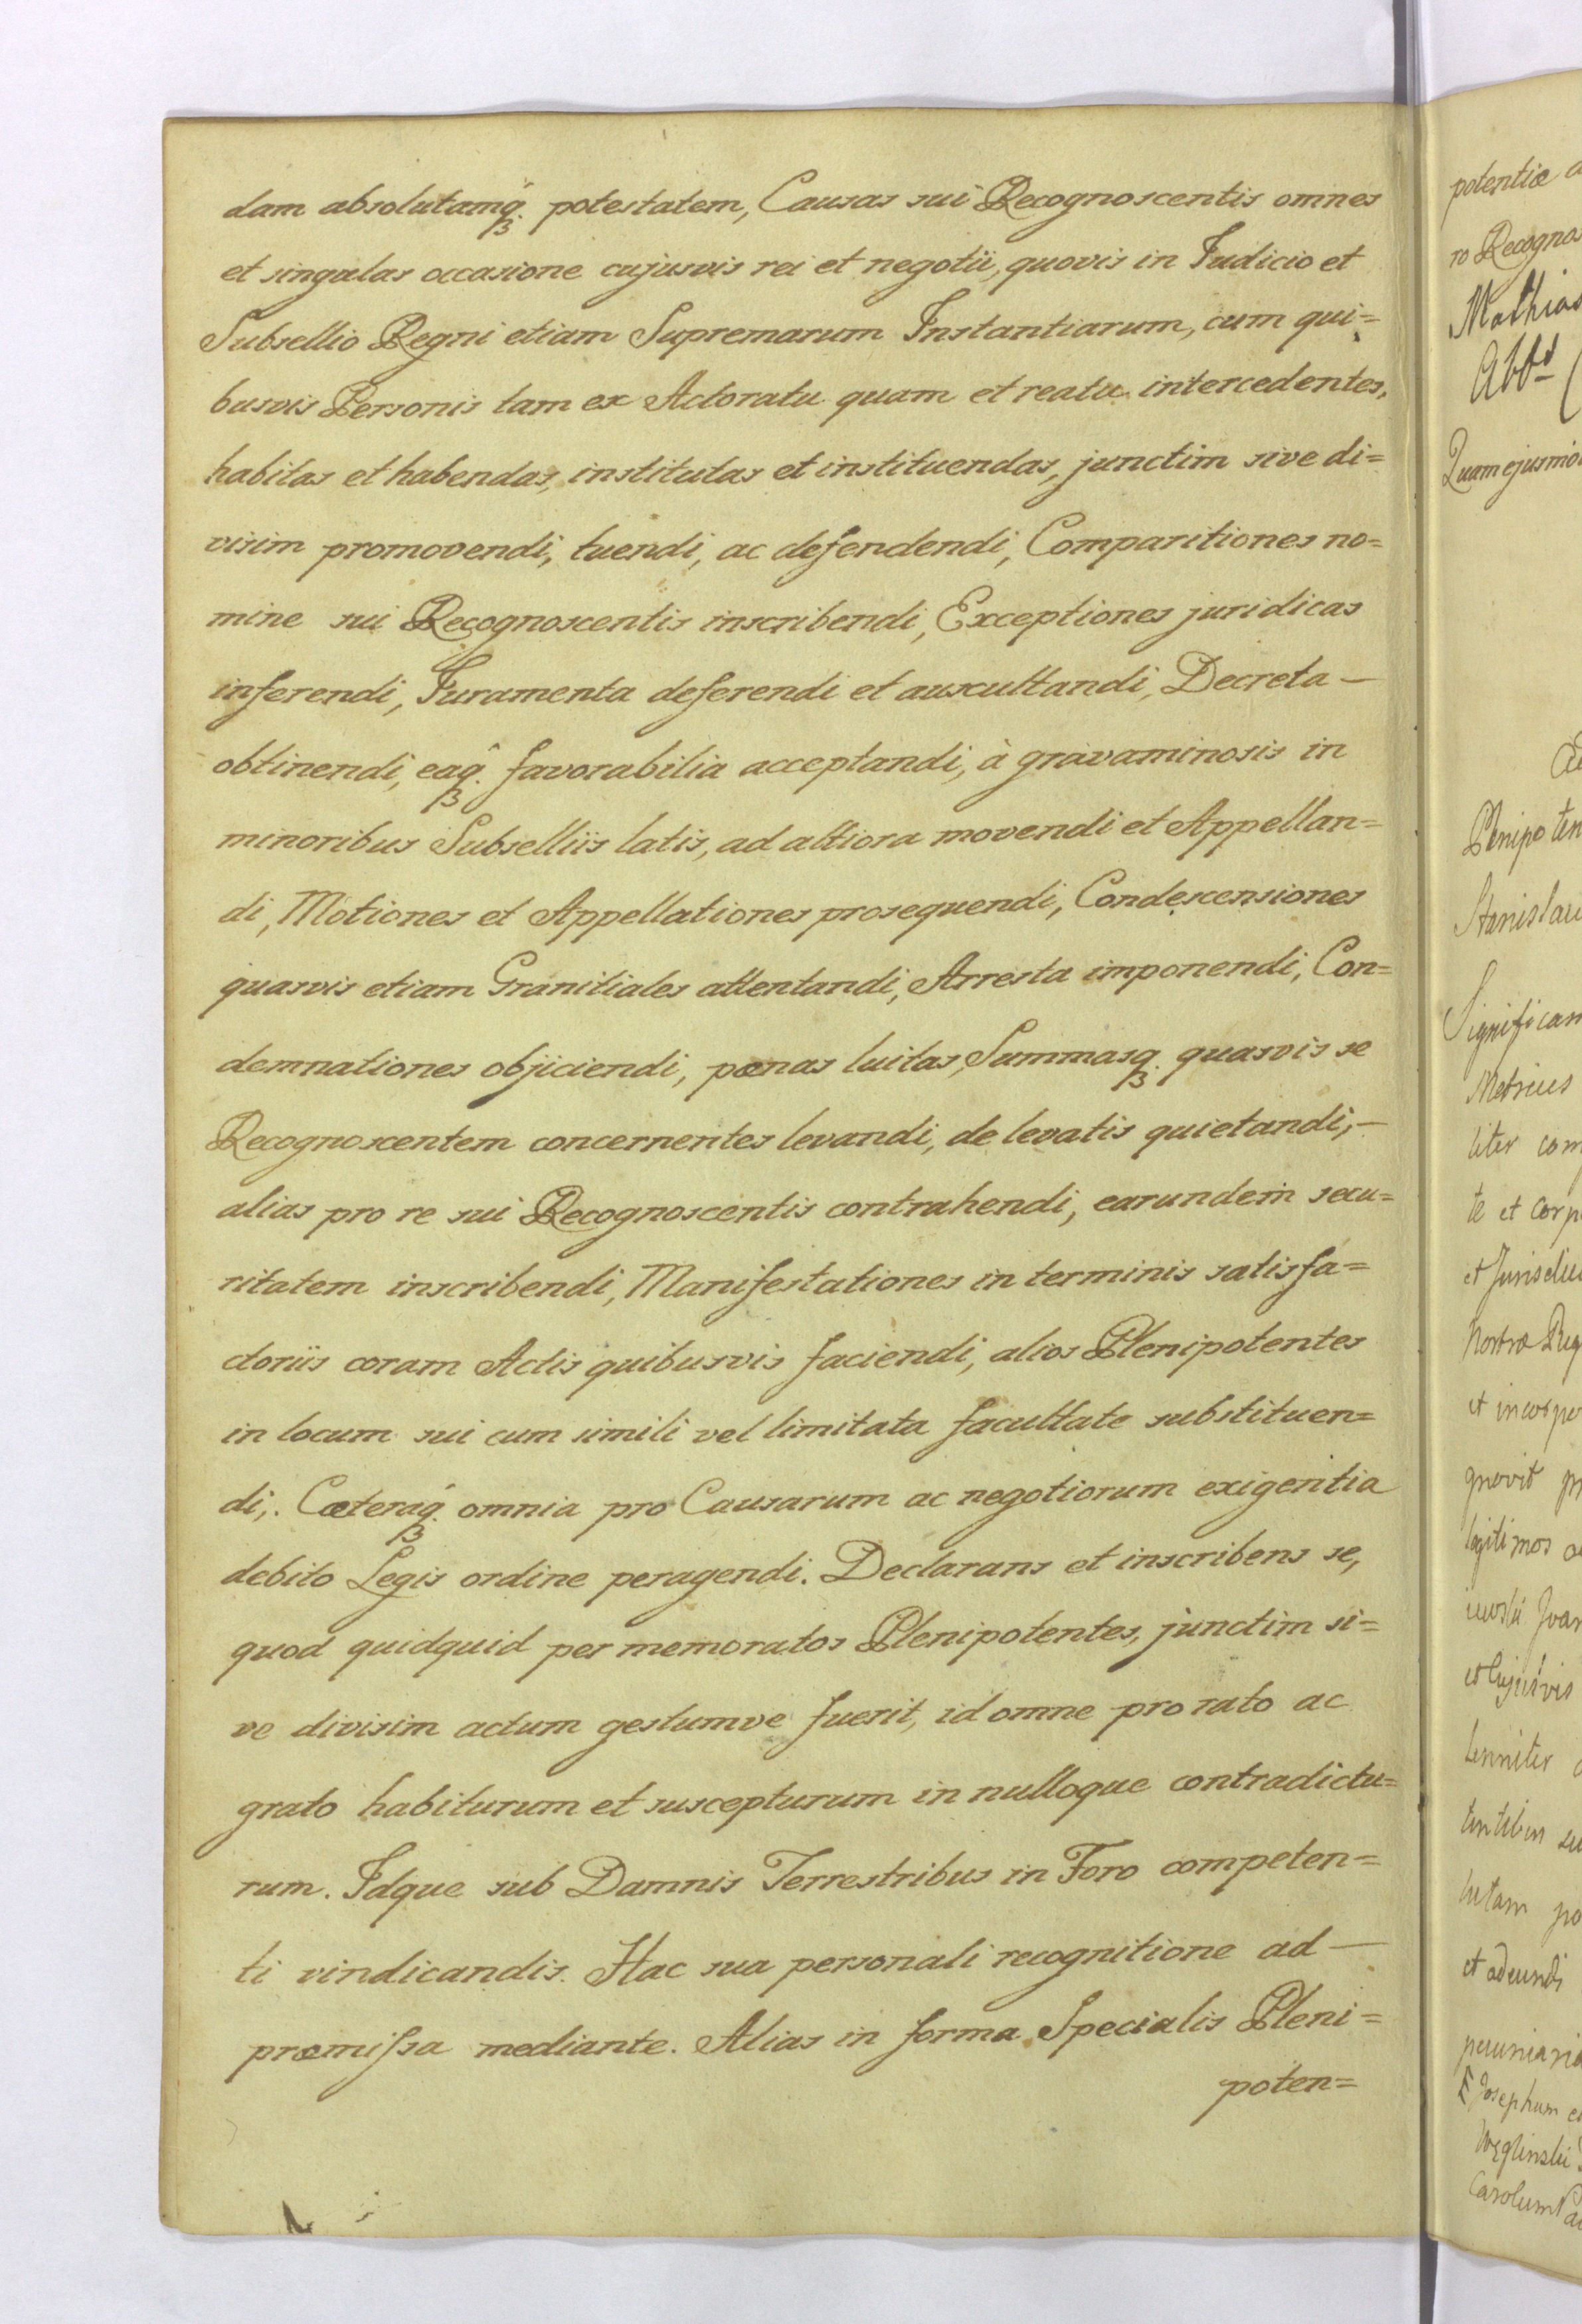 dam absolutamq́ꝫ. potestatem, Causas sui Recognoscentis omnes
et singulas occasione cujusvis rei et negotii, quovis in Iudicio et
Subsellio Regni etiam Supremarum Instantiarum, cum qui=
busvis Personis tam ex Actoratu quam et reatu intercedentes,
habitas et habendas, institutas et instituendas, junctim sive di=
visim promovendi, tuendi, ac defendendi, Comparitiones no=
mine sui Recognoscentis inscribendi, Exceptiones juridicas
inferendi, Iuramenta deferendi et auscultandi, Decreta —
obtinendi, eaq̂ꝫ. favorabilia acceptandi, à gravaminosis in
minoribus Subselliis latis, ad altiora movendi et Appellan=
di, Motiones et Appellationes prosequendi, Condescensiones
quasvis etiam Granitiales attentandi, Arresta imponendi, Con=
demnationes objiciendi, pœnas luitas, Summasqꝫ. quasvis se
Recognoscentem concernentes levandi, de levatis quietandi, —
alias pro re sui Recognoscentis contrahendi, earundem secu=
ritatem inscribendi, Manifestationes in terminis satisfa=
ctoriis coram Actis quibusvis faciendi, alios Plenipotentes
in locum sui cum simili vel limitata facultate substituen=
di,. Cœteraq́ꝫ. omnia pro Causarum ac negotiorum exigentia
debito Legis ordine peragendi. Declarans et inscribens se,
quod quidquid per memoratos Plenipotentes, junctim si=
ve divisim actum gestumve fuerit, id omne pro rato ac
grato habiturum et suscepturum in nulloque contradictu=
rum. Idque sub Damnis Terrestribus in Foro competen=
ti vindicandis. Hac sua personali recognitione ad —
præmiſsa mediante. Alias in forma Specialis Pleni=
poten=
potentiæ
ro Recogno
Mathias
Quam ejusmo
Plenipoten
Stanislau
Significam
liter com
te et corp
et Jurisdic
Nostra Reg
quovit
legitimos
et cujusvis
lenniter
tentibus
lutam po
et adeundi
pecuniaria
Josephum
Węglinski
Carolum